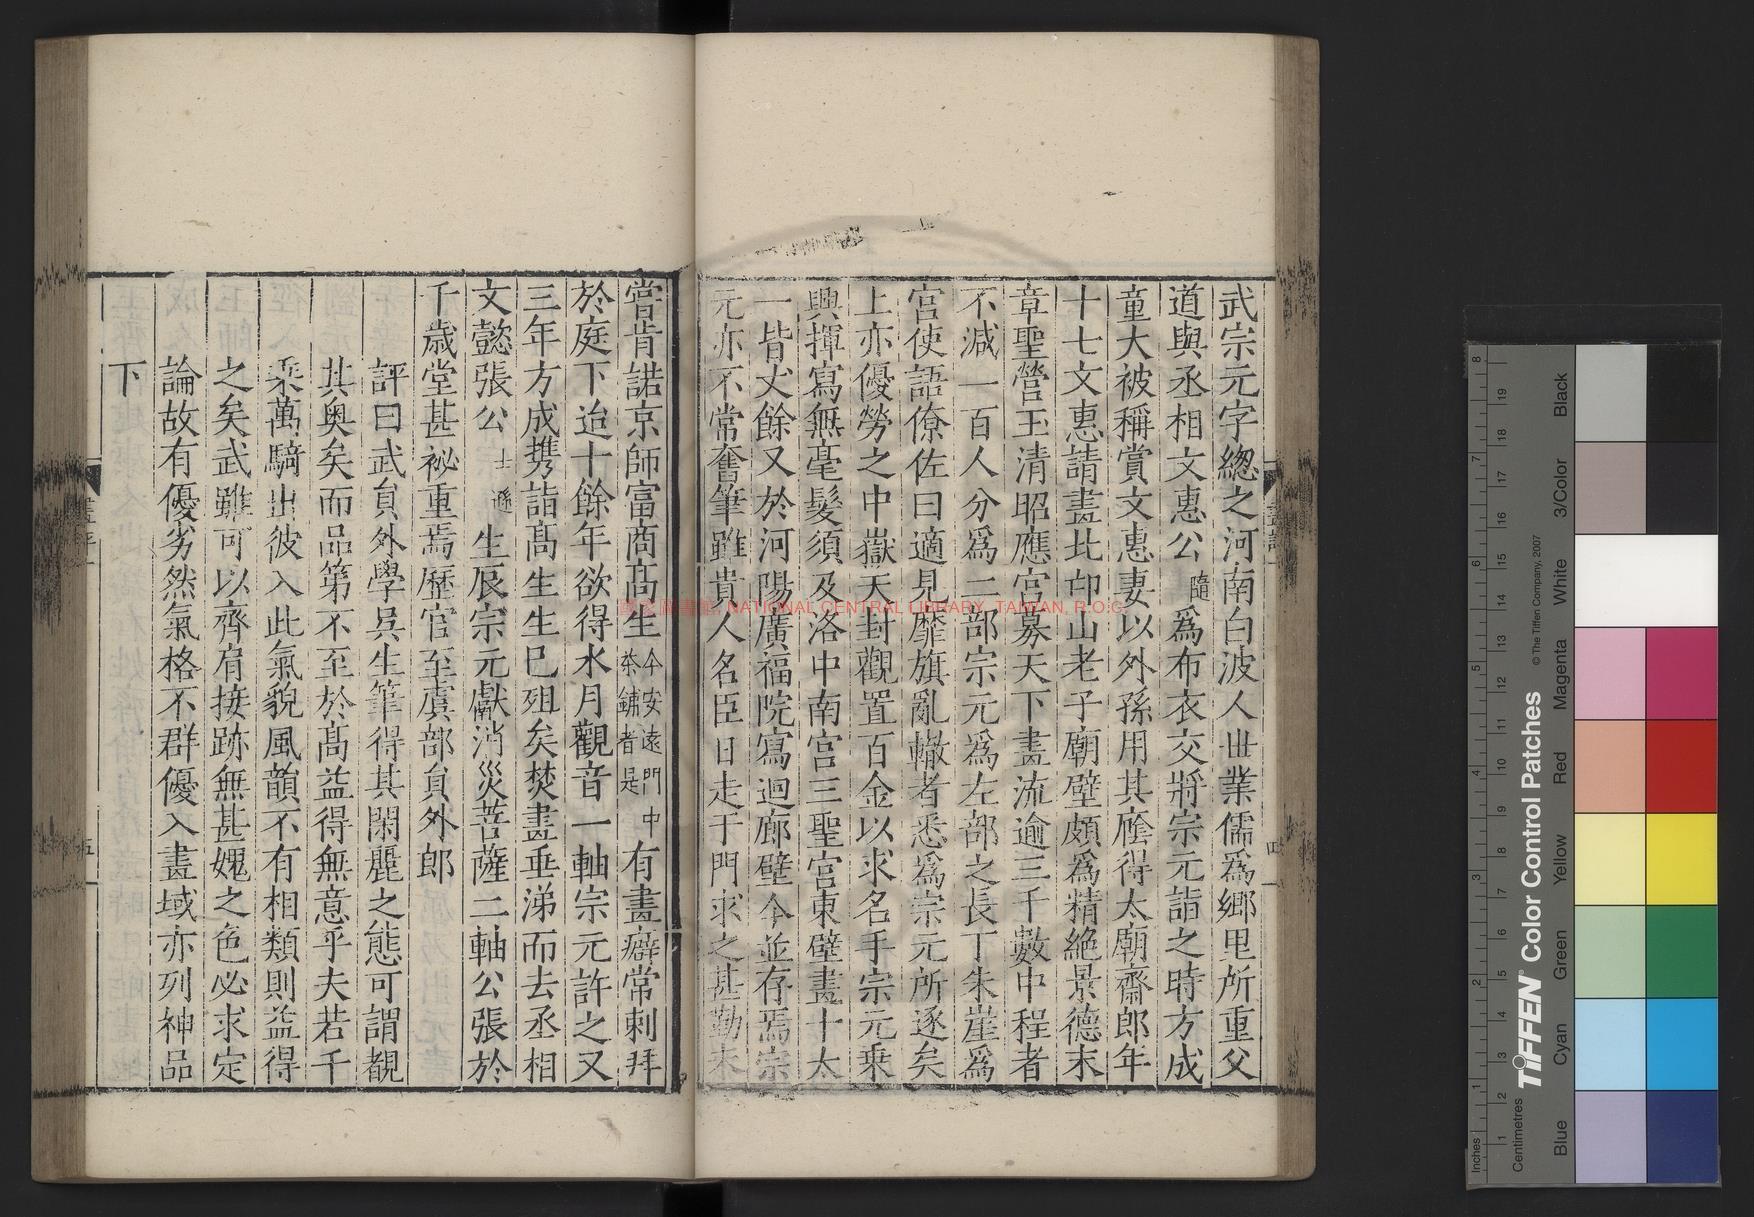 武宗元字緫之河南白波人世業儒爲鄉里所重父
道與丞相文惠公隨爲布衣交將宗元詣之時方成
童大被稱賞文惠妻以外孫用其廕得太廟齋郎年
十七文惠請畫北邙山老子廟壁頗爲精絕景德末
章聖營玉清昭應宮募天下畫流逾三千數中程者
不減一百人分爲二部宗元爲左部之長丁朱崖爲
宮使語僚佐曰適見靡旗亂轍者悉爲宗元所逐矣
上亦優勞之中嶽天封觀置百金以求名手宗元乗
興揮寫無毫髮須及洛中南宮三聖宮東壁畫十太
一皆丈餘又於河陽廣福院寫迴廊壁今並存焉宗
元亦不常奮筆雖貴人名臣日走于門求之甚勤未
甞肯諾京師富商高生今安遠門中茶鋪者是有畫癖常剌拜
於庭下迨十餘年欲得水月觀音一軸宗元許之又
三年方成携詣高生生已殂矣焚畫垂涕而去丞相
文懿張公士遜生辰宗元獻消災菩薩二軸公張於
千歳堂甚祕重焉歷官至虞部貟外郎
評曰武貟外學吳生筆得其閑麗之態可謂覩
其奧矣而品第不至於高益得無意乎夫若千
乘萬騎出彼入此氣貌風韻不有相類則益得
之矣武雖可以齊肩接跡無甚媿之色必求定
論故有優劣然氣格不群優入畫域亦列神品
下
畫評
四
畫評
五
NATIONAL CENTRAL LIBRARY, TAIWAN, R.O.C.
TIFFEN® Color Control Patches
© The Tiffen Company, 2007
Inches
Centimetres
Blue
Cyan
Green
Yellow
Red
Magenta
White
3/Color
Black